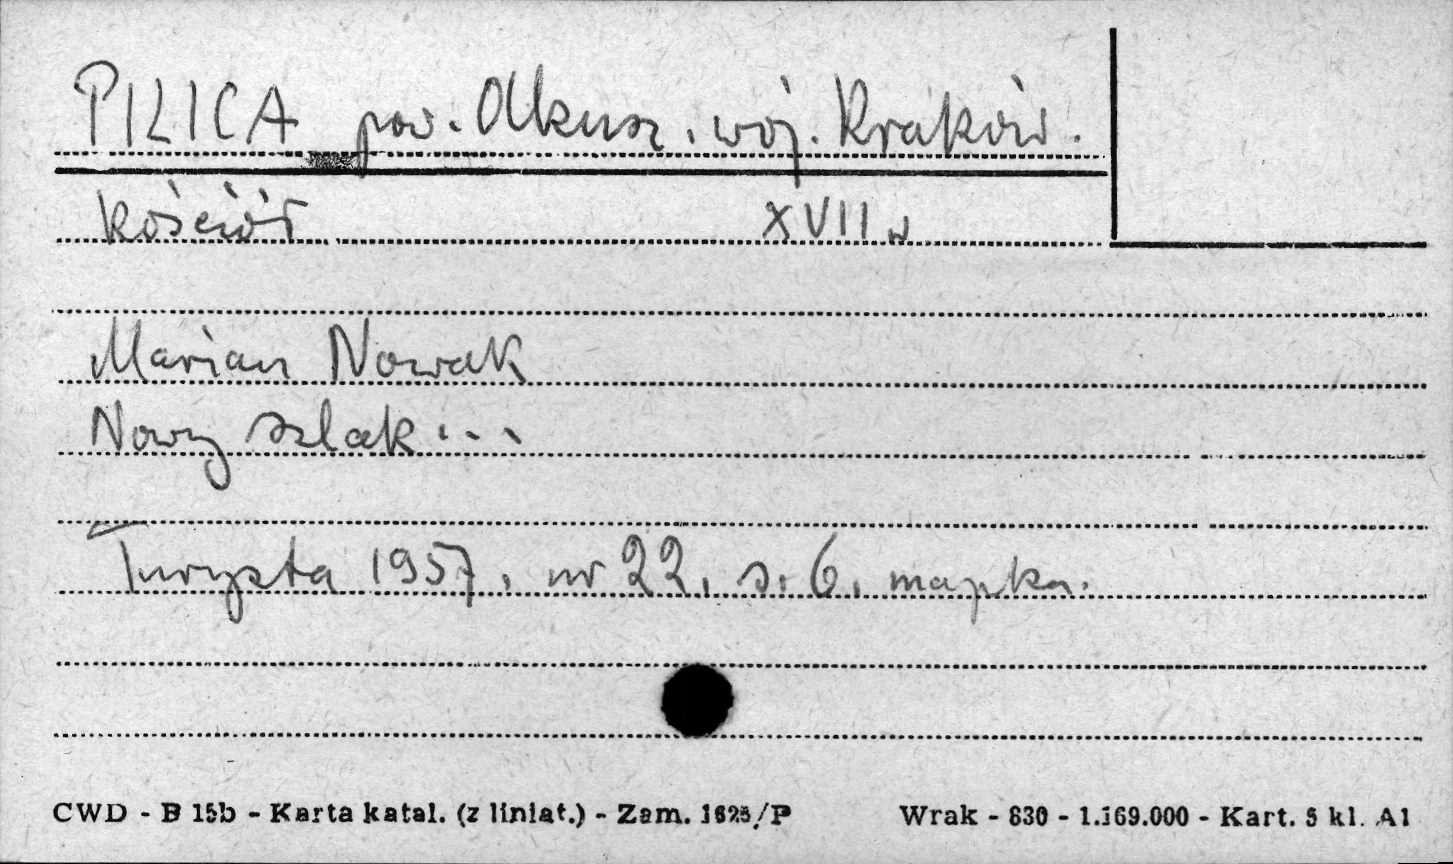 PILICA pow. Olkusz. woj. Kraków.
Kościół XVII w
Marian Nowak
Nowy szlak...
Turysta 1957, nr 22, s. 6, mapka.
CWD - B 15b - Karta katal. (z liniat.) - Zam. 1625/P Wrak - 830 - 1.169.000 - Kart. 5 kl. A1